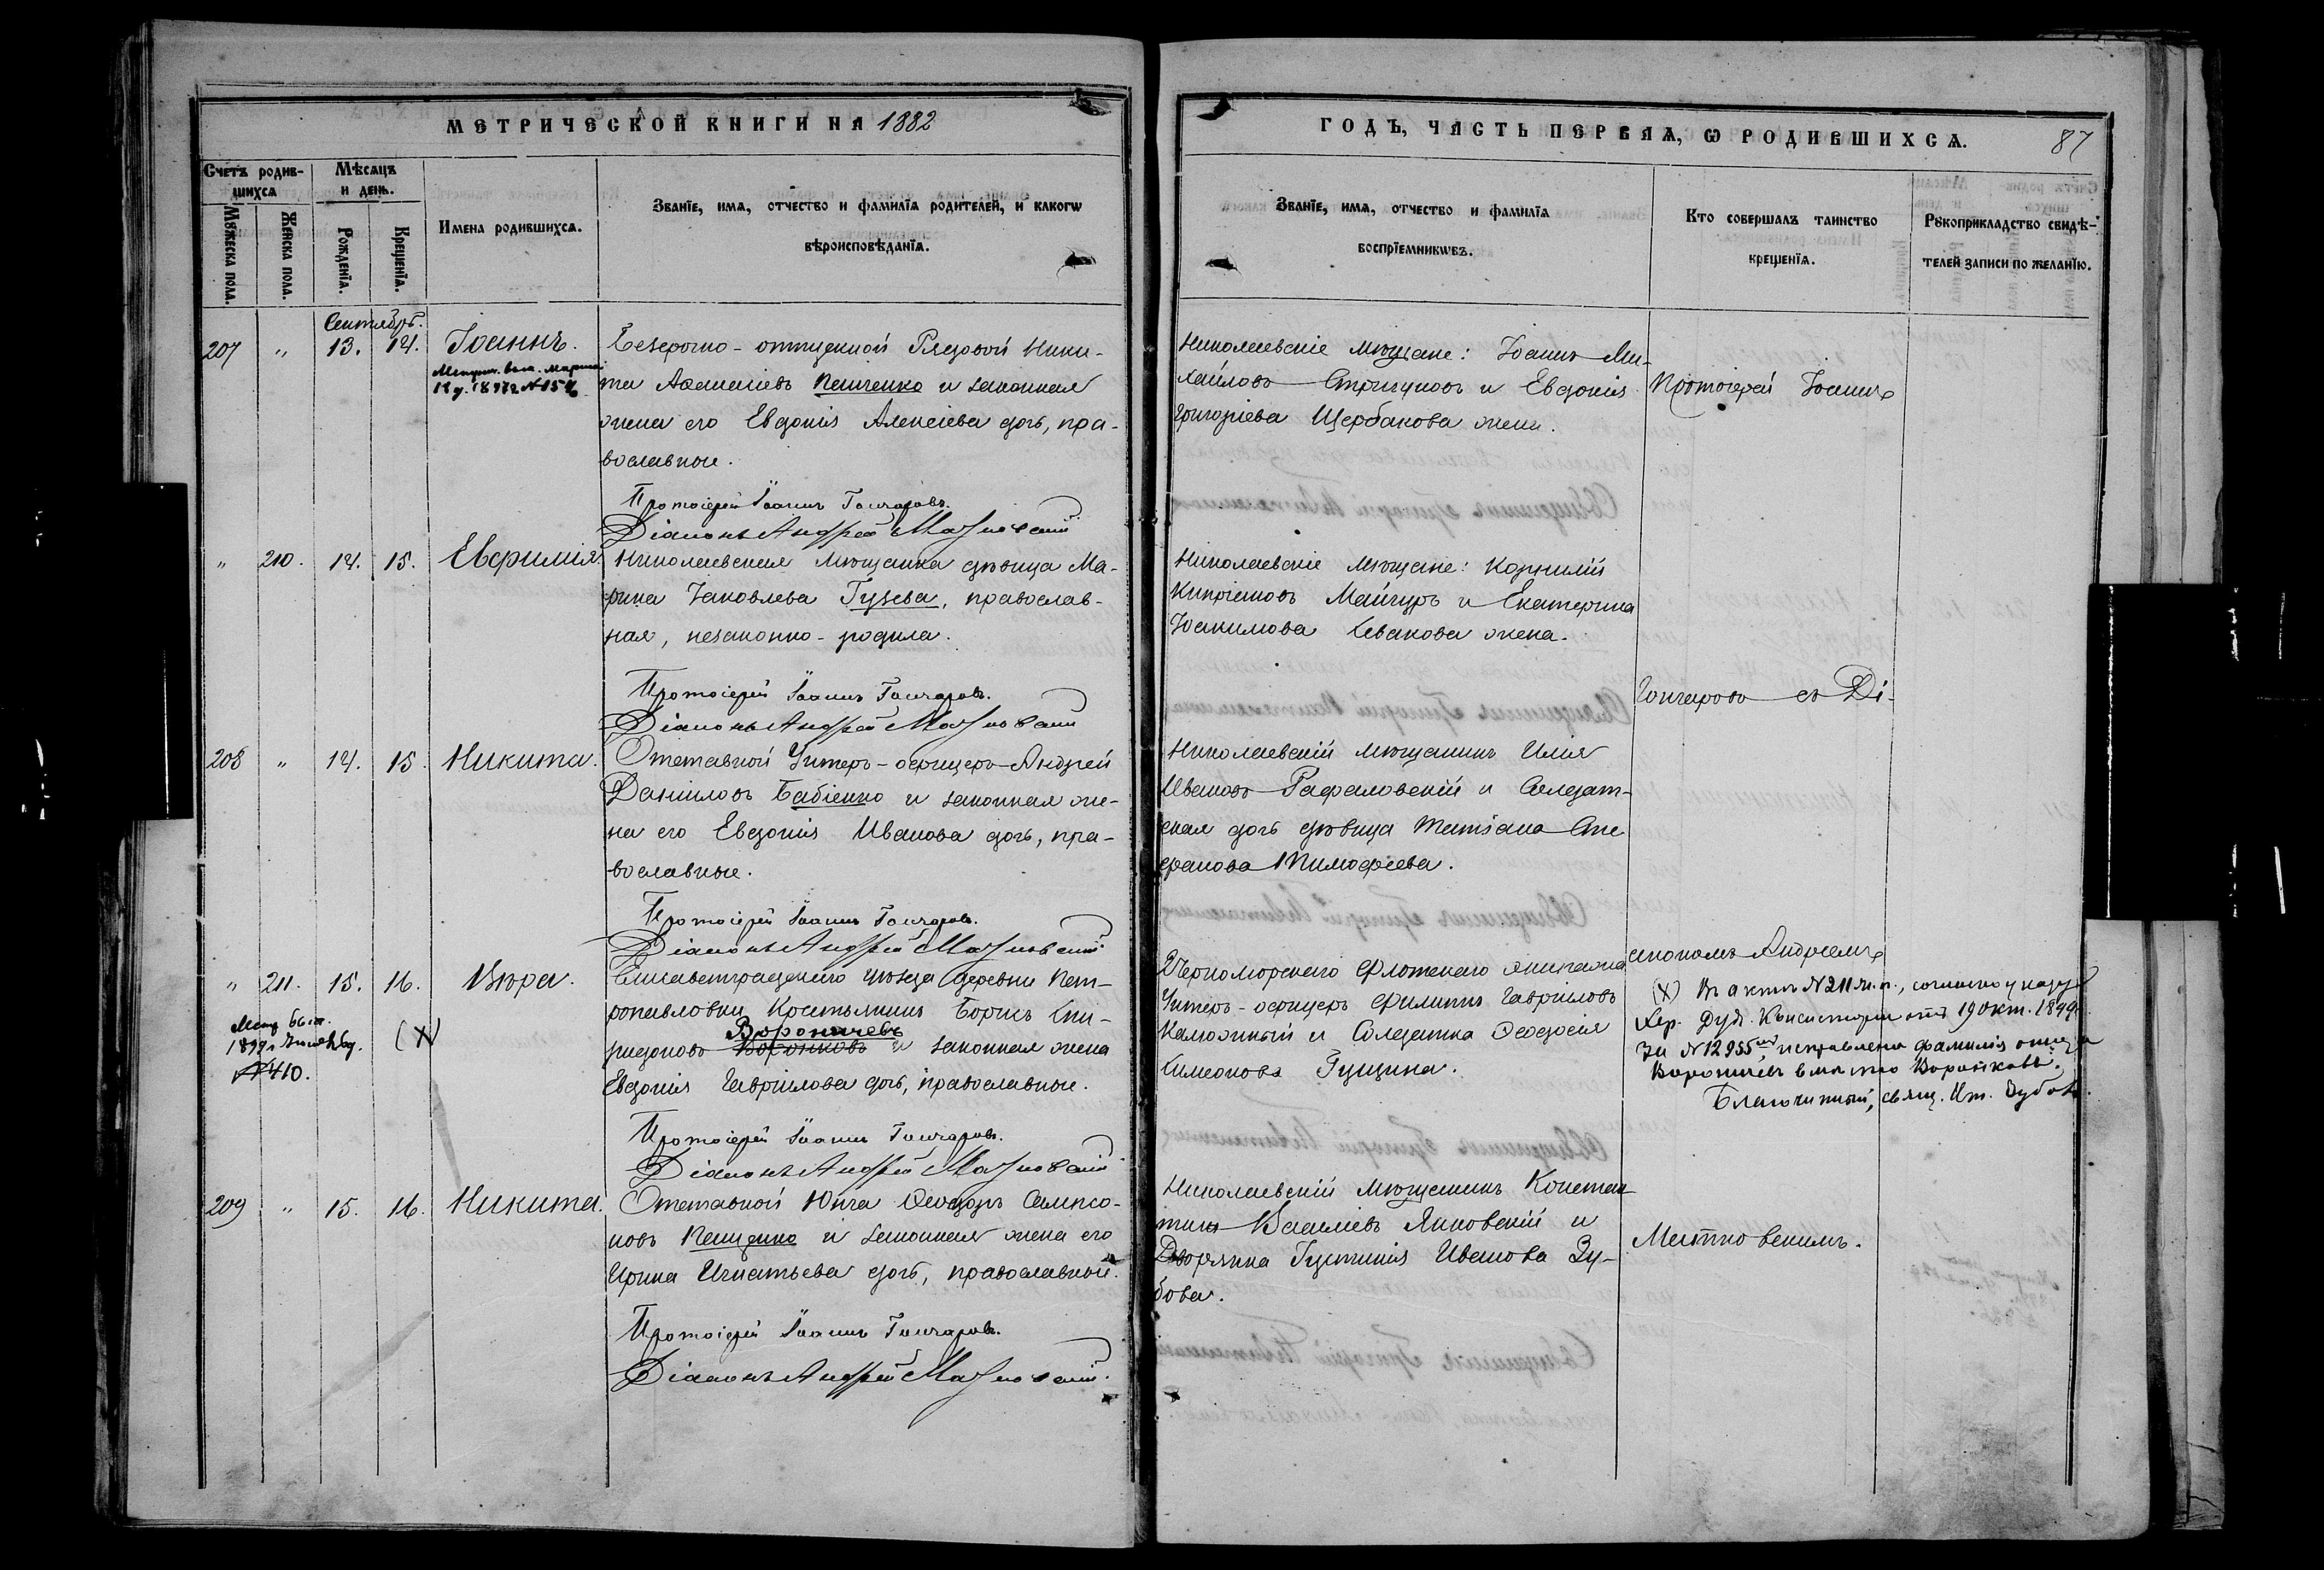 МЕТРИЧЕСКОЙ КНИГИ НА 1882
ГОДЪ, ЧАСТЬ ПЕРВАЯ, Ѡ РОДИВШИХСѦ.
87
Счетъ родив-
шихсѧ
Мѣсѧцъ
и день.
Мꙋжеска пола.
Женска пола.
Рожденїѧ.
Крещенїѧ.
Имена родившихсѧ.
Званїе, имѧ, отчество и фамилїѧ родителей, и какогѡ
вѣроисповѣданїѧ.
Званїе, имѧ, отчество и фамилїѧ
воспрїемникѡвъ.
Кто совершалъ таинство
крещенїѧ.
Рꙋкоприкладство свидѣ-
телей записи по желанїю.
Сентябрь.
207 " 13. 14. Іоаннъ.
Безсрочно-отпускной Рядовой Ники-
та Аѳанасіевъ Пешченко и законная
жена его Евдокія Алексіева дочь, пра-
вославные.
Протоіерей Іоаннъ Гончаровъ.
Діаконъ Андрей
Николаевскіе мѣщане: Іоаннъ Ми-
хайловъ Стригуновъ и Евдокія
Григоріева Щербакова жена.
Протоіерей Іоаннъ
" 210. 14. 15. Евфимія.
Николаевская мѣщанка дѣвица Ма-
рина Іаковлева Гузева, православ-
ная, незаконно-родила.
Протоіерей Іоаннъ Гончаровъ.
Діаконъ Андрей
Николаевскіе мѣщане: Корнилій
Кипріановъ Майгуръ и Екатерина
Іоакимова жена.
Гончаровъ съ Ді-
208 " 14. 15. Никита.
Отставной Унтеръ-офицеръ Андрей
Даніиловъ Бабіенко и законная же-
на его Евдокія Иванова дочь, пра-
вославные.
Протоіерей Іоаннъ Гончаровъ.
Діаконъ Андрей
Николаевскій мѣщанинъ Илія
Ивановъ Рафаловскій и Солдат-
ская дочь дѣвица Татіана Сте
фанова Тимофеева.
акономъ Андреемъ
" 211. 15. 16. Вѣра.
1899 г.
№ 410.
(X)
Елисаветградскаго уѣзда деревни Пет-
ропавловки Крестьянинъ Борисъ Спи-
ридоновъ Воронковъ Вороничевъ и законная жена
Евдокія Гавріилова дочь, православные.
Протоіерей Іоаннъ Гончаровъ.
Діаконъ Андрей
Черноморскаго флотскаго экипажа
Унтеръ-офицеръ Филиппъ Гавріиловъ
Калюжный и Солдатка Ѳеодосія
Симеонова Гущина.
(X) Въ актѣ № 211 ж. п., согласно указу
Хер. Дух. Консисторіи отъ 19 окт. 1899 г.
за № 12955 исправлена фамилія отца
Вороничевъ вмѣсто Воронковъ.
Благочинный, свящ. Зубовъ
209 " 15. 16. Никита.
Отставной Юнга Ѳеодоръ Сампсо-
новъ Пещенко и законная жена его
Ирина Игнатьева дочь, православные.
Протоіерей Іоаннъ Гончаровъ.
Діаконъ Андрей
Николаевскій мѣщанинъ Констан
тинъ Василіевъ Янковскій и
Дворянка Густинія Иванова Зу-
бова.